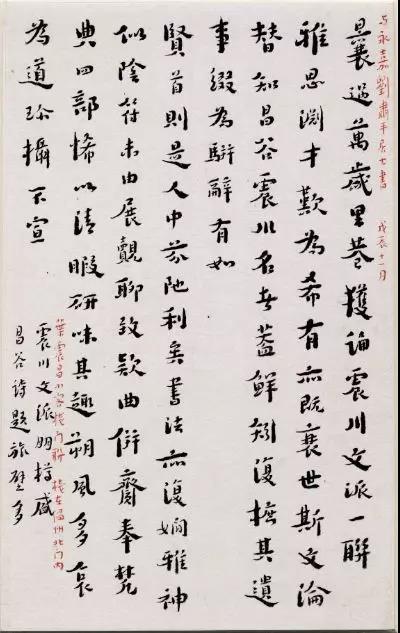 与永嘉劉肅平居士書 戊辰十一月
曩過萬歲里巷獲誦震川文派一聯
雅思淵才歎為希有亦既衰世斯文淪
替知昌谷震川名者蓋鮮矧復摭其遺
事綴為駢辭有如
賢首則是人中芬陀利矣書法亦復嫻雅神
似陰符未由展覿聊致款曲併齎奉梵
典四部悕以清暇研味其趣朔風多哀
為道珍攝不宣
葉震昌小客棧門聯 棧在溫州北門內
震川文派明樽盛
昌谷詩題旅壁多